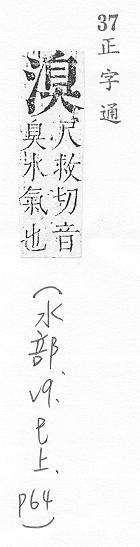 37 正字通
溴
尺救切音
臭水氣也
(水部、v9、巳上、p64)